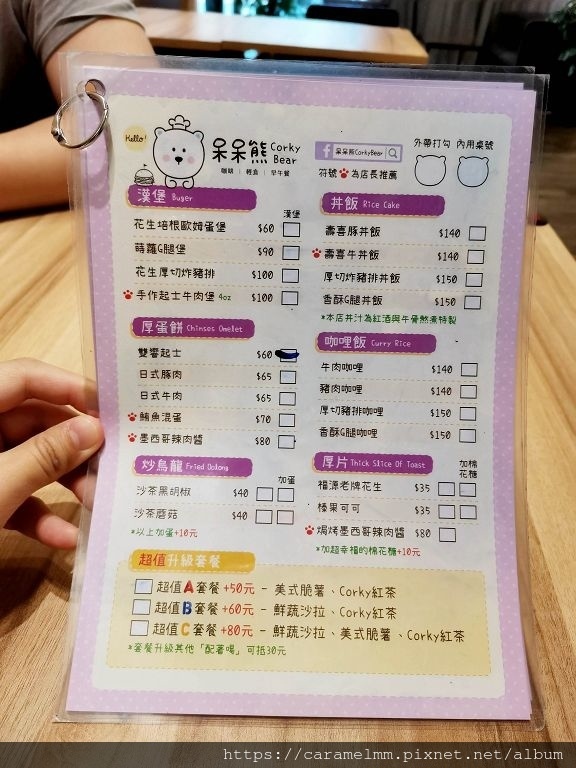 Hello!
呆呆熊 Corky Bear
咖啡 | 輕食 | 早午餐
f 呆呆熊CorkyBear
符號 為店長推薦
外帶打勾 內用桌號
漢堡 Buger
漢堡
花生培根歐姆蛋堡 $60
蒔蘿G腿堡 $90
花生厚切炸豬排 $100
手作起士牛肉堡 4oz $100
厚蛋餅 Chinses Omelet
雙響起士 $60
日式豚肉 $65
日式牛肉 $65
鮪魚混蛋 $70
墨西哥辣肉醬 $80
炒烏龍 Fried Oolong
加蛋
沙茶黑胡椒 $40
沙茶蘑菇 $40
*以上加蛋+10元
丼飯 Rice Cake
壽喜豚丼飯 $140
壽喜牛丼飯 $140
厚切炸豬排丼飯 $150
香酥G腿丼飯 $150
*本店丼汁為紅酒與牛骨熬煮特製
咖哩飯 Curry Rice
牛肉咖哩 $140
豬肉咖哩 $140
厚切豬排咖哩 $150
香酥G腿咖哩 $150
厚片 Thick Slice Of Toast
加棉花糖
福源老牌花生 $35
榛果可可 $35
焗烤墨西哥辣肉醬 $80
*加超幸福的棉花糖+10元
超值升級套餐
超值A套餐 +50元 - 美式脆薯、Corky紅茶
超值B套餐 +60元 - 鮮蔬沙拉、Corky紅茶
超值C套餐 +80元 - 鮮蔬沙拉、美式脆薯、Corky紅茶
*套餐升級其他「配著喝」可抵30元
https://caramelmm.pixnet.net/album